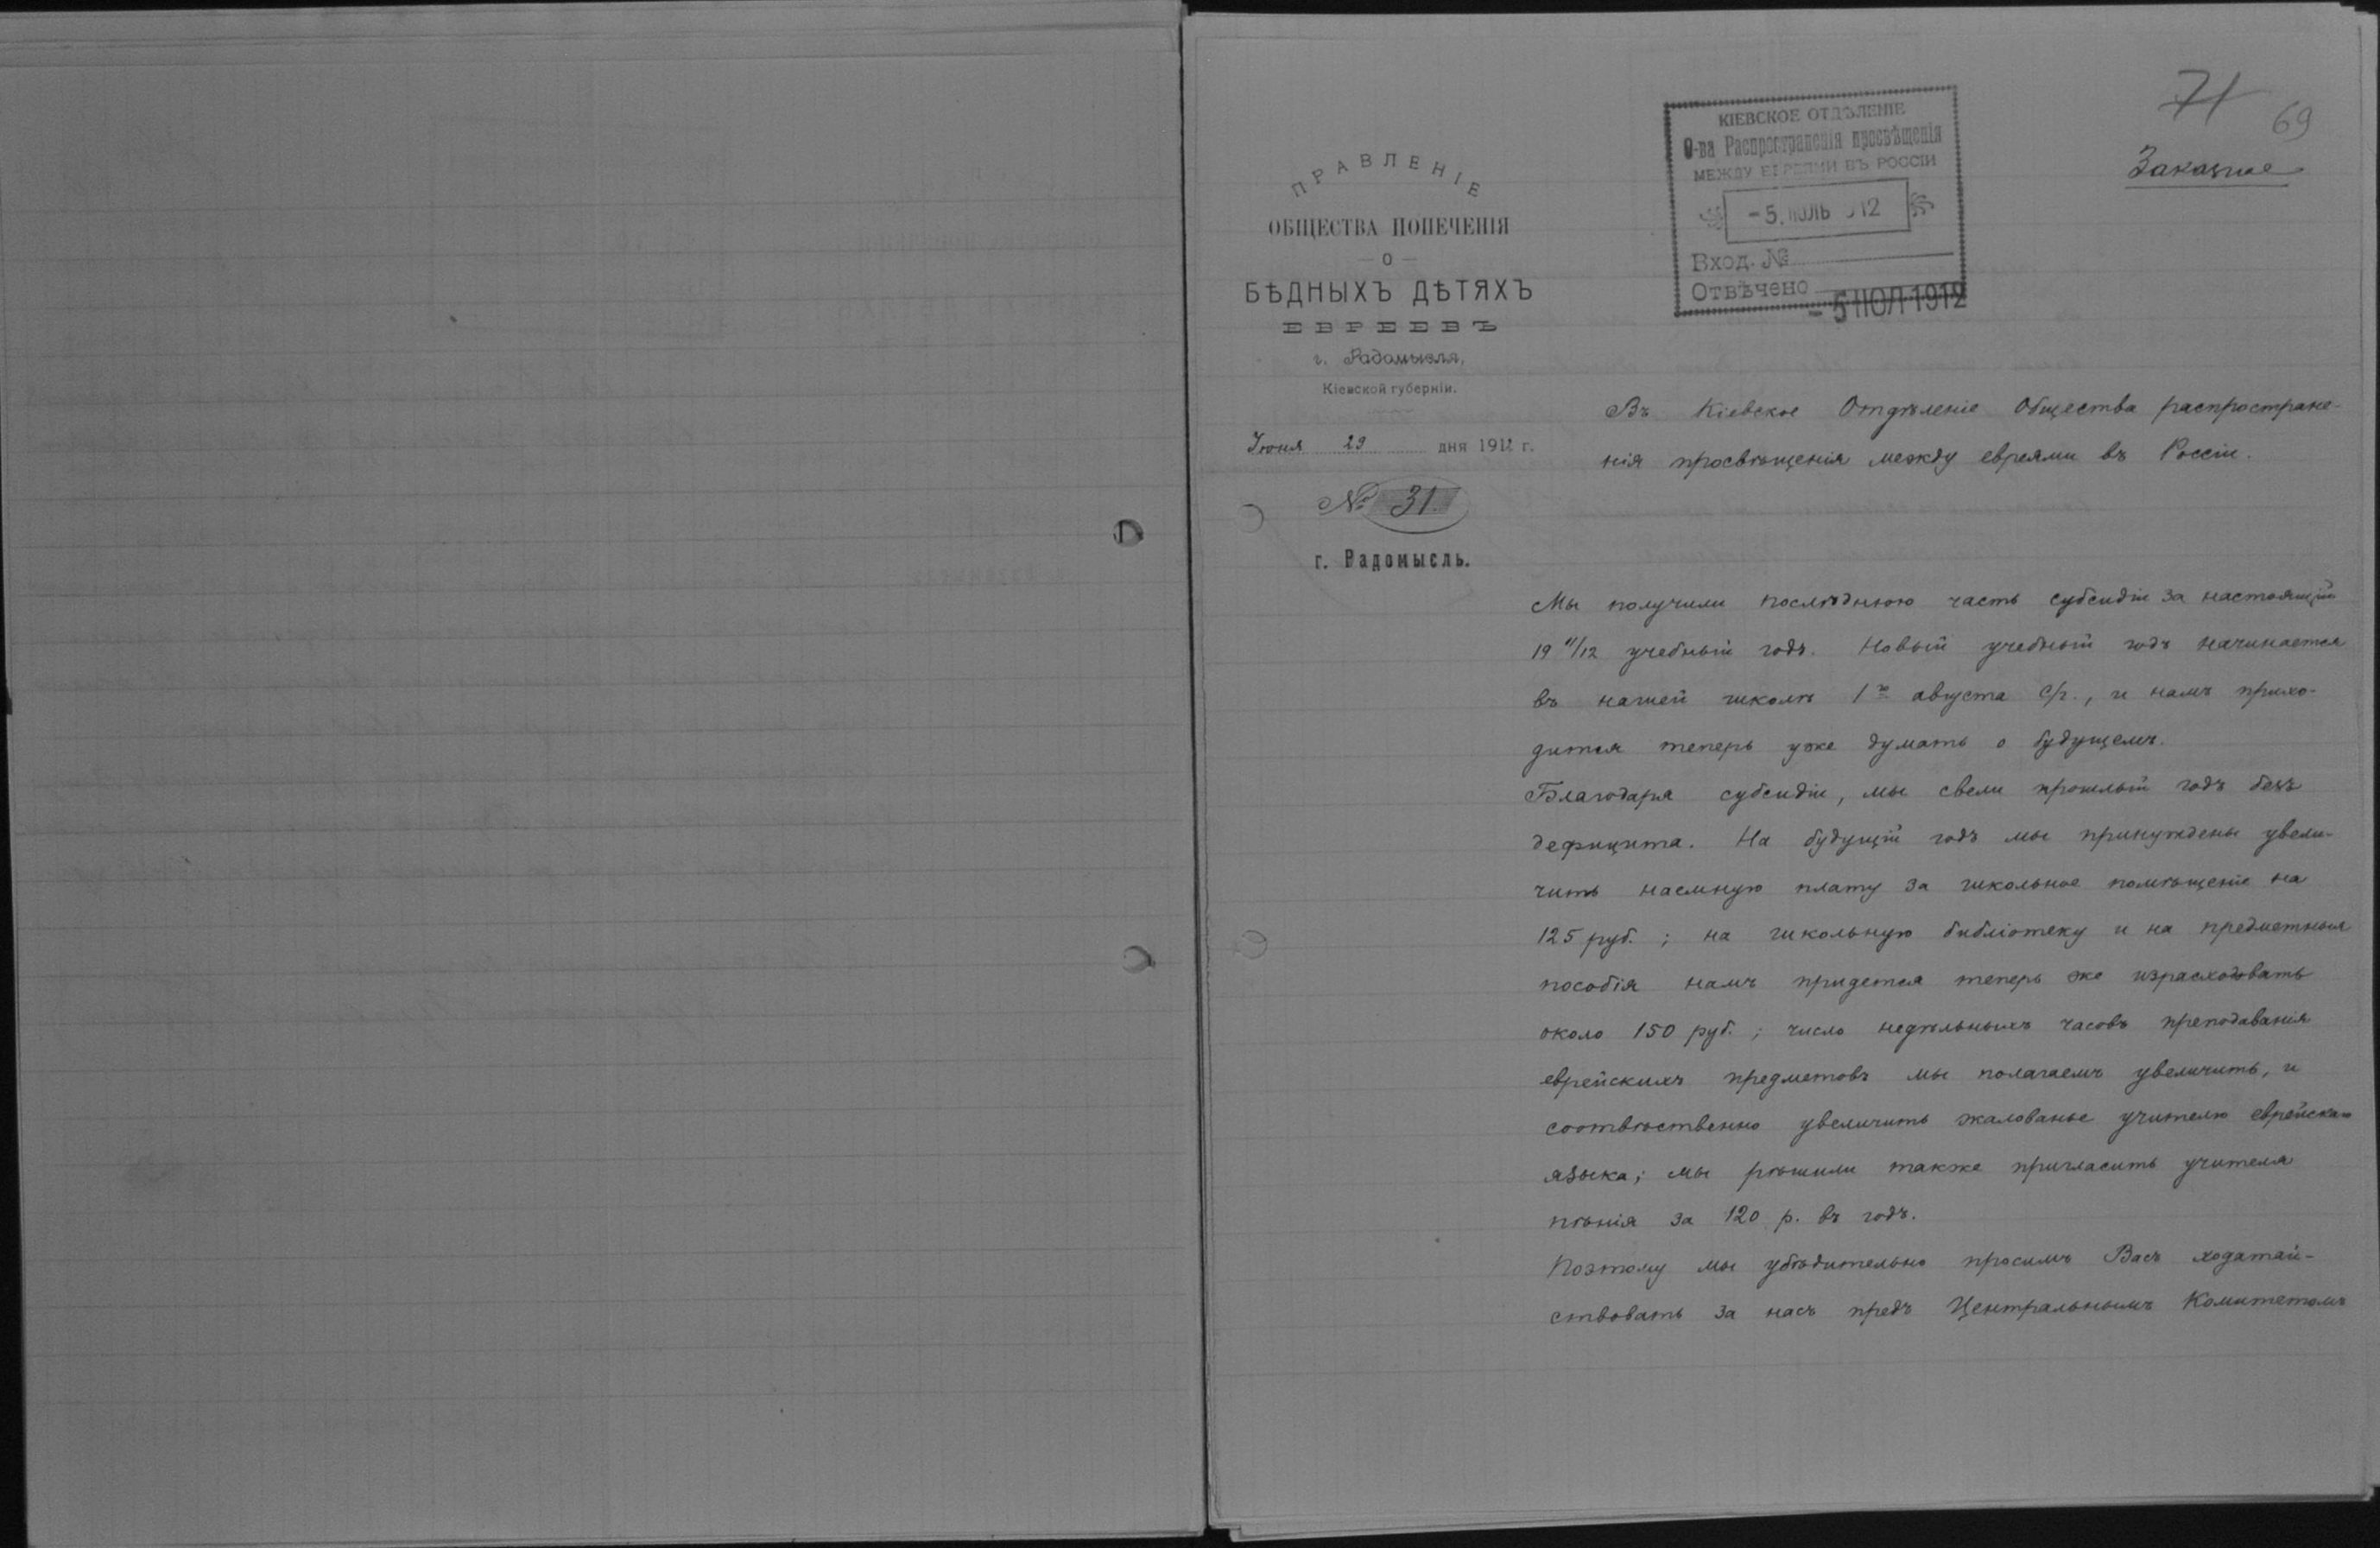 71
69
Заказное
КІЕВСКОЕ ОТДѢЛЕНІЕ
О-ва Распространенія просвѣщенія
МЕЖДУ ЕВРЕЯМИ ВЪ РОССІИ
- 5. ІЮЛЬ 912
Вход. №
Отвѣчено
- 5 ІЮЛ 1912
ПРАВЛЕНІЕ
ОБЩЕСТВА ПОПЕЧЕНІЯ
— О —
БѢДНЫХЪ ДѢТЯХЪ
ЕВРЕЕВЪ
г. Радомысля,
Кіевской губерніи.
Іюня 29 дня 1912 г.
№ 31
г. Радомысль.
Въ Кіевское Отдѣленіе Общества распростране-
нія просвѣщенія между евреями въ Россіи.
Мы получили послѣднюю часть субсидіи за настоящій
19 11/12 учебный годъ. Новый учебный годъ начинается
въ нашей школѣ 1го августа с/г., и намъ прихо-
дится теперь уже думать о будущемъ.
Благодаря субсидіи, мы свели прошлый годъ безъ
дефицита. На будущій годъ мы принуждены увели-
чить наемную плату за школьное помѣщеніе на
125 руб.; на школьную библіотеку и на предметныя
пособія намъ придется теперь же израсходовать
около 150 руб.; число недѣльныхъ часовъ преподаванія
еврейскихъ предметовъ мы полагаемъ увеличить, и
соотвѣтственно увеличить жалованье учителю еврейскаго
языка; мы рѣшили также пригласить учителя
пѣнія за 120 р. въ годъ.
Поэтому мы убѣдительно просимъ Васъ ходатай-
ствовать за насъ предъ Центральнымъ Комитетомъ